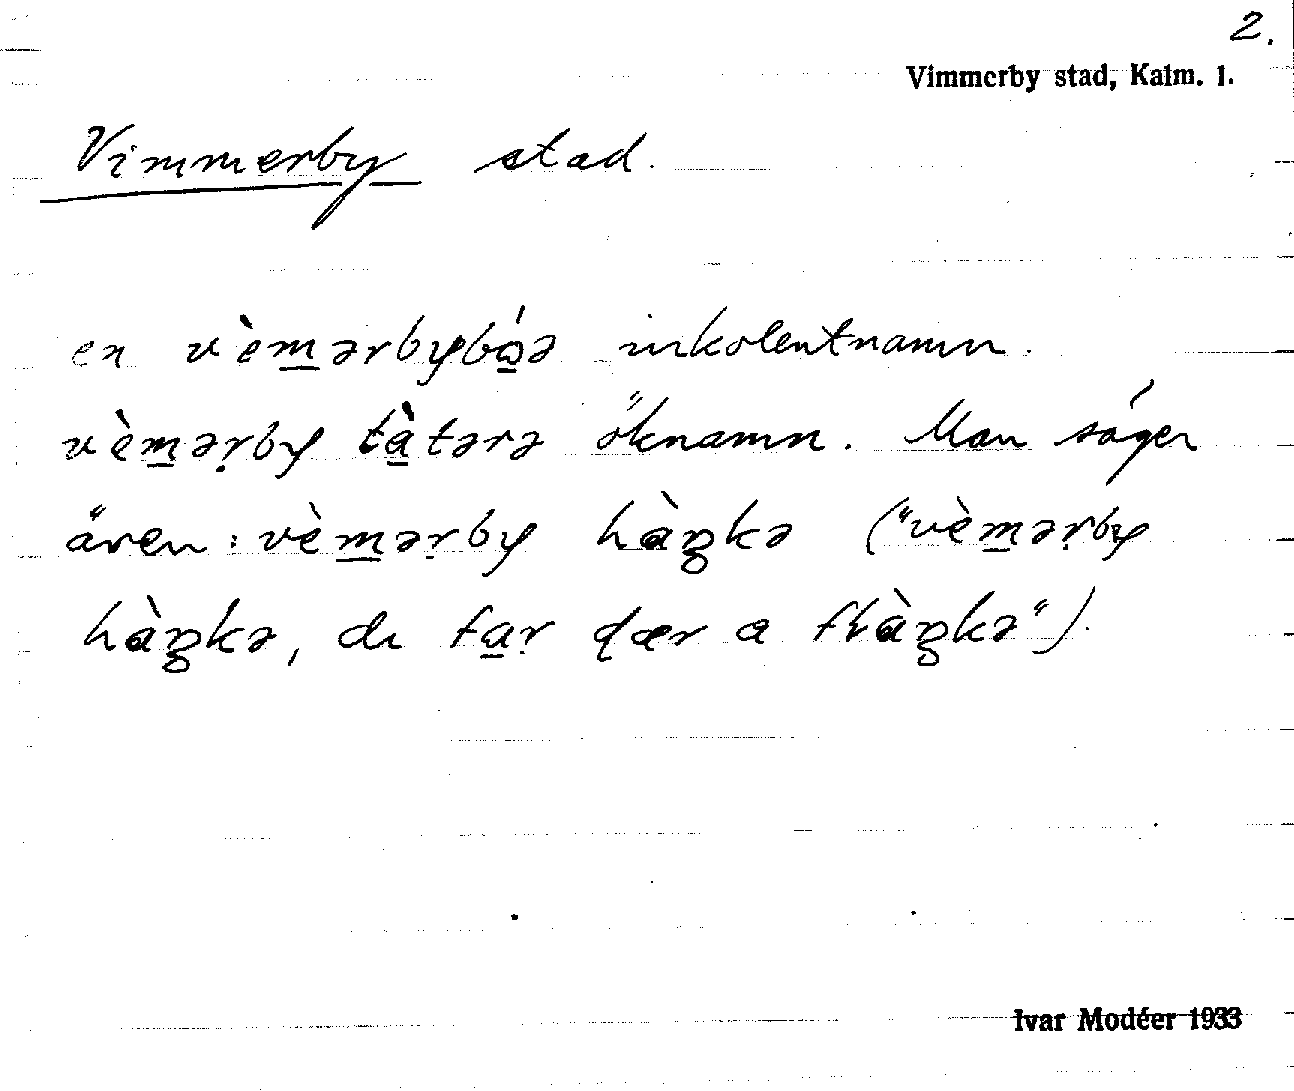 2.
Vimmerby stad, Kalm. 1.
Vimmerby stad.
en vèm̲ərbybó̲ə inkolentnamn.
vèm̲əṛby tà̲tərə öknamn. Man säger
även: vèm̲əṛby hàŋkə ("vèm̲əṛby
hàŋkə, di ta̲ṛ dær a fḷàŋkə").
Ivar Modéer 1933